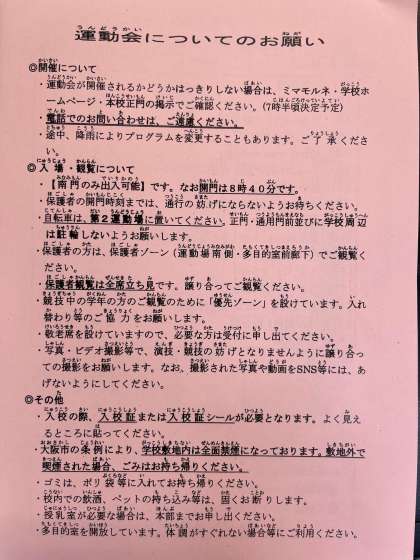 運動会についてのお願い
◎開催について
・運動会が開催されるかどうかはっきりしない場合は、ミマモルネ・学校ホ
ームページ・本校正門の掲示でご確認ください。(7時半頃決定予定)
・電話でのお問い合わせは、ご遠慮ください。
・途中、降雨によりプログラムを変更することもあります。ご了承くださ
い。
◎入場・観覧について
・【南門のみ出入可能】です。なお開門は8時40分です。
・保護者の開門時刻までは、通行の妨げにならないようお待ちください。
・自転車は、第2運動場に置いてください。正門・通用門前並びに学校周辺
は駐輪しないようお願いします。
・保護者の方は、保護者ゾーン(運動場南側・多目的室前廊下)でご観覧く
ださい。
・保護者観覧は全席立ち見です。譲り合ってご観覧ください。
・競技中の学年の方のご観覧のために「優先ゾーン」を設けています。入れ
替わり等のご協力をお願いします。
・敬老席を設けていますので、必要な方は受付に申し出てください。
・写真・ビデオ撮影等で、演技・競技の妨げとなりませんように譲り合っ
ての撮影をお願いします。なお、撮影された写真や動画をSNS等には、あ
げないようにしてください。
◎その他
・入校の際、入校証または入校証シールが必要となります。よく見え
るところに貼ってください。
・大阪市の条例により、学校敷地内は全面禁煙になっております。敷地外で
喫煙された場合、ごみはお持ち帰りください。
・ゴミは、ポリ袋等に入れてお持ち帰りください。
・校内での飲酒、ペットの持ち込み等は、固くお断りします。
・授乳室が必要な場合は、本部までお申し出ください。
・多目的室を開放しています。体調がすぐれない場合等にご利用ください。